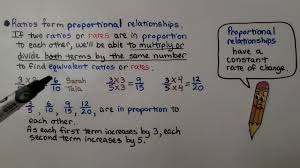 Ratios form proportional relationships.
If two ratios or rates are in proportion
to each other, we'll be able to multiply or
divide both terms by the same number
to find equivalent ratios or rates.
3 × 2 6 Sarah 3 × 3 = 9 3 × 4 = 12
10 Talia 5 × 3 15 5 × 4 20
3, 6, 9, 12, are in proportion to
5 10 15 20
each other.
As each first term increases by 3, each
second term increases by 5.
Proportional
relationships
have a
constant
rate of change.